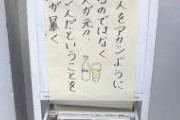 人をアカンように
るのではなく
人が元々
ン人だということを
が暴く